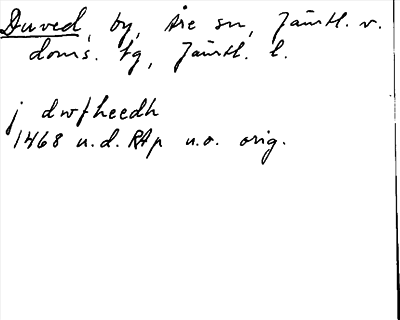 Duved, by, Åre sn, Jämtl. v.
doms. tg, Jämtl. l.
j dwfheedh
1468 u.d. RAp u.o. orig.